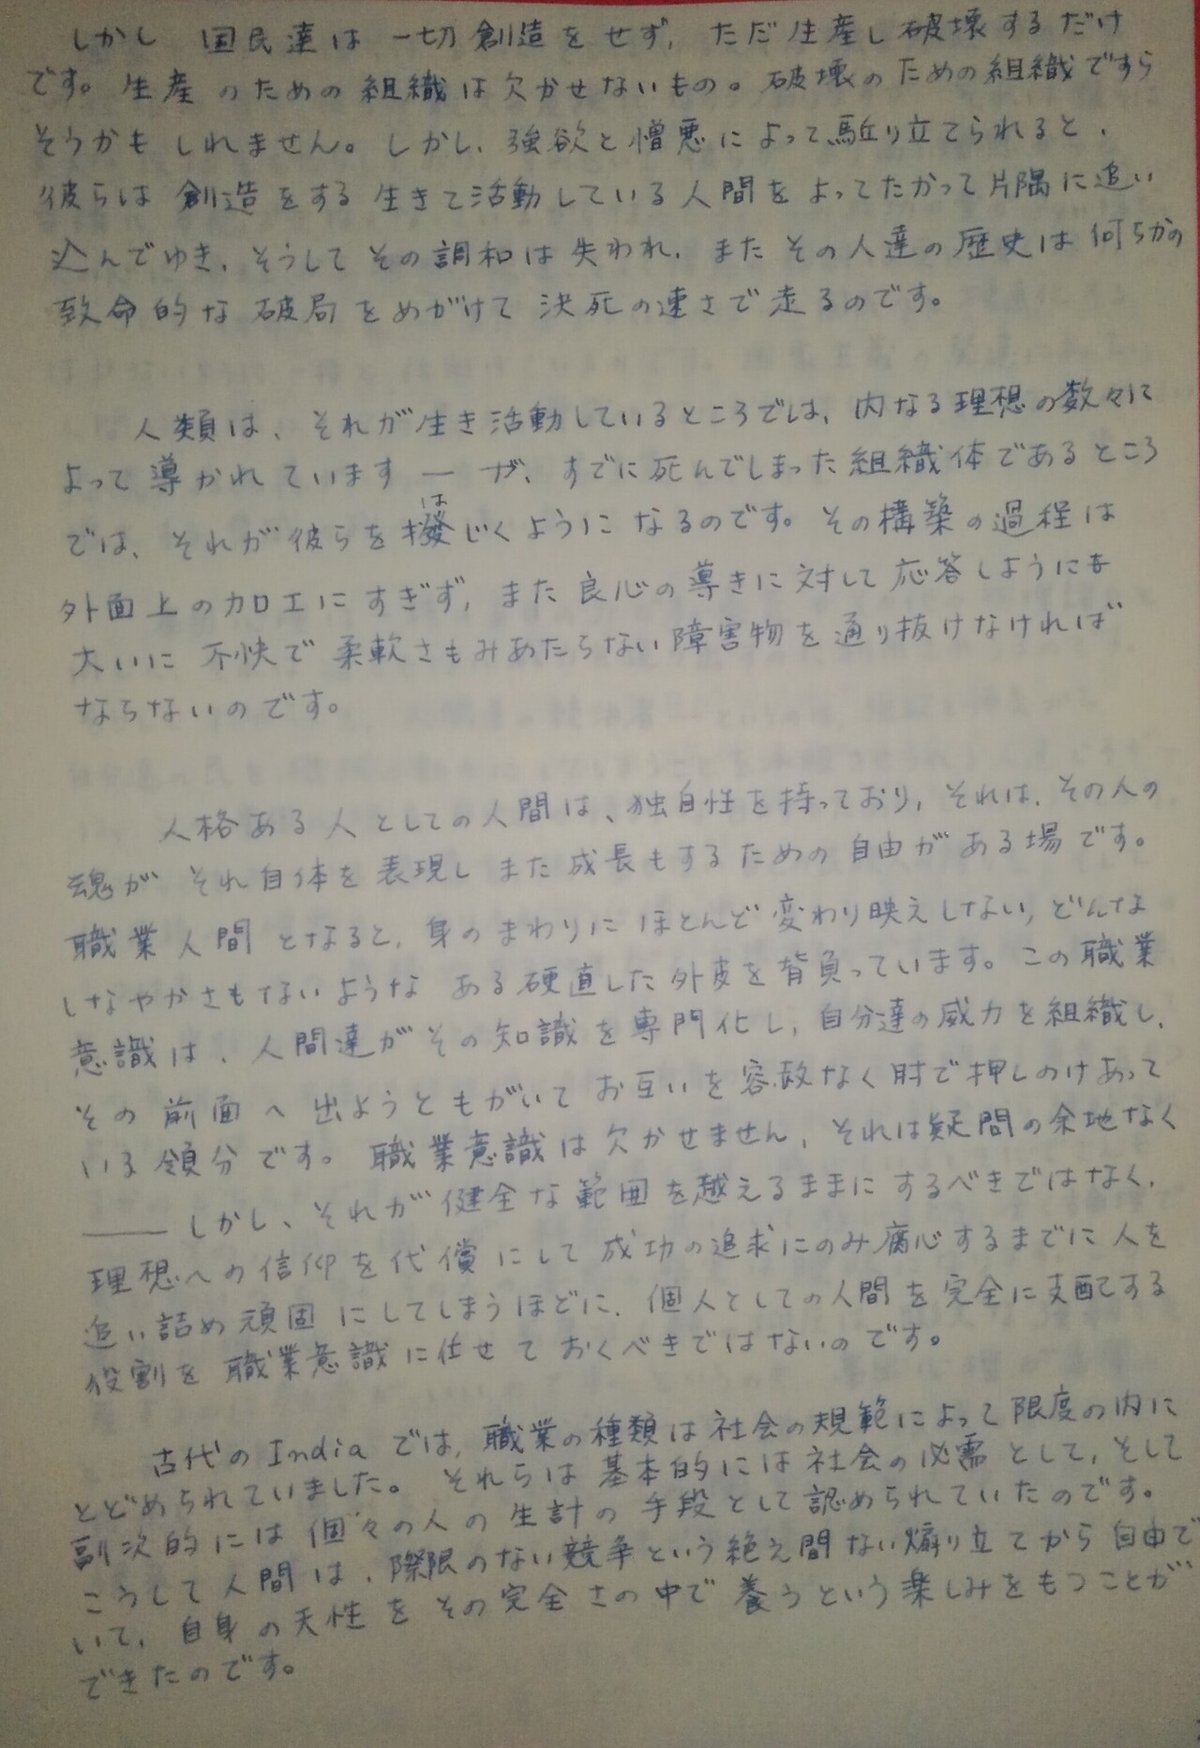 しかし 国民達は 一切創造をせず, ただ生産し破壊するだけ
です。生産のための組織は欠かせないもの。破壊のための組織ですら
そうかもしれません。しかし、強欲と憎悪によって駈り立てられると、
彼らは創造をする生きて活動している人間をよってたかって片隅に追い
込んでゆき、そうしてその調和は失われ、またその人達の歴史は何らかの
致命的な破局をめがけて決死の速さで走るのです。
人類は、それが生き活動しているところでは、内なる理想の数々に
よって導かれています ― が、すでに死んでしまった組織体であるところ
では、それが彼らを撥じくようになるのです。その構築の過程は
は
外面上の加工にすぎず, また良心の導きに対して応答しようにも
大いに不快で柔軟さもみあたらない障害物を通り抜けなければ
ならないのです。
人格ある人としての人間は、独自性を持っており, それは、その人の
魂がそれ自体を表現しまた成長もするための自由がある場です。
職業人間となると, 身のまわりにほとんど変わり映えしない, どんな
しなやかさもないような ある硬直した外皮を背負っています。この職業
意識は、人間達がその知識を専門化し, 自分達の威力を組織し、
その前面へ出ようともがいてお互いを容赦なく肘で押しのけあって
いる領分です。職業意識は欠かせません, それは疑問の余地なく
― しかし、それが健全な範囲を越えるままにするべきではなく、
理想への信仰を代償にして成功の追求にのみ腐心するまでに人を
追い詰め頑固にしてしまうほどに、個人としての人間を完全に支配する
役割を職業意識に任せておくべきではないのです。
古代のIndiaでは, 職業の種類は社会の規範によって限度の内に
とどめられていました。それらは基本的には社会の必需として, そして
副次的には個々の人の生計の手段として認められていたのです。
こうして人間は、際限のない競争という絶え間ない煽り立てから自由で
いて, 自身の天性をその完全さの中で養うという楽しみをもつことが
できたのです。